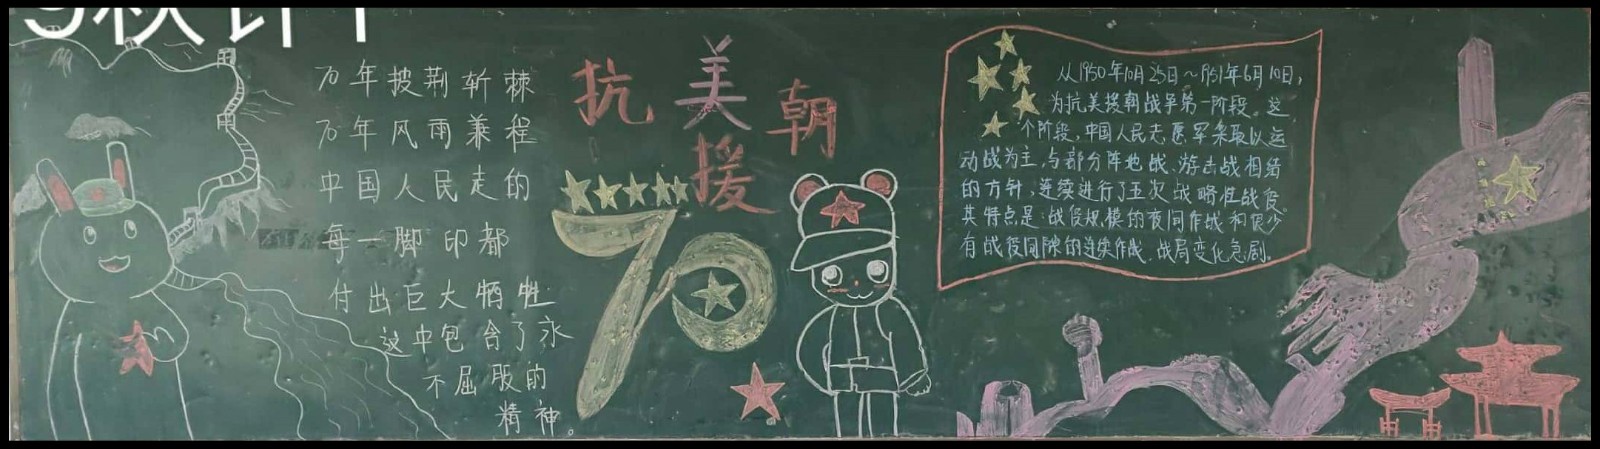 70年披荆斩棘
70年风雨兼程
中国人民走的
每一脚印都
付出巨大牺牲
这中包含了永
不屈服的
精神。
抗美援朝
70
从1950年10月25日～1951年6月10日，
为抗美援朝战争第一阶段。这
个阶段，中国人民志愿军采取以运
动战为主，与部分阵地战、游击战相结
的方针，连续进行了五次战略性战役
其特点是：战役规模的夜间作战和很少
有战役间隙的连续作战，战局变化急剧。